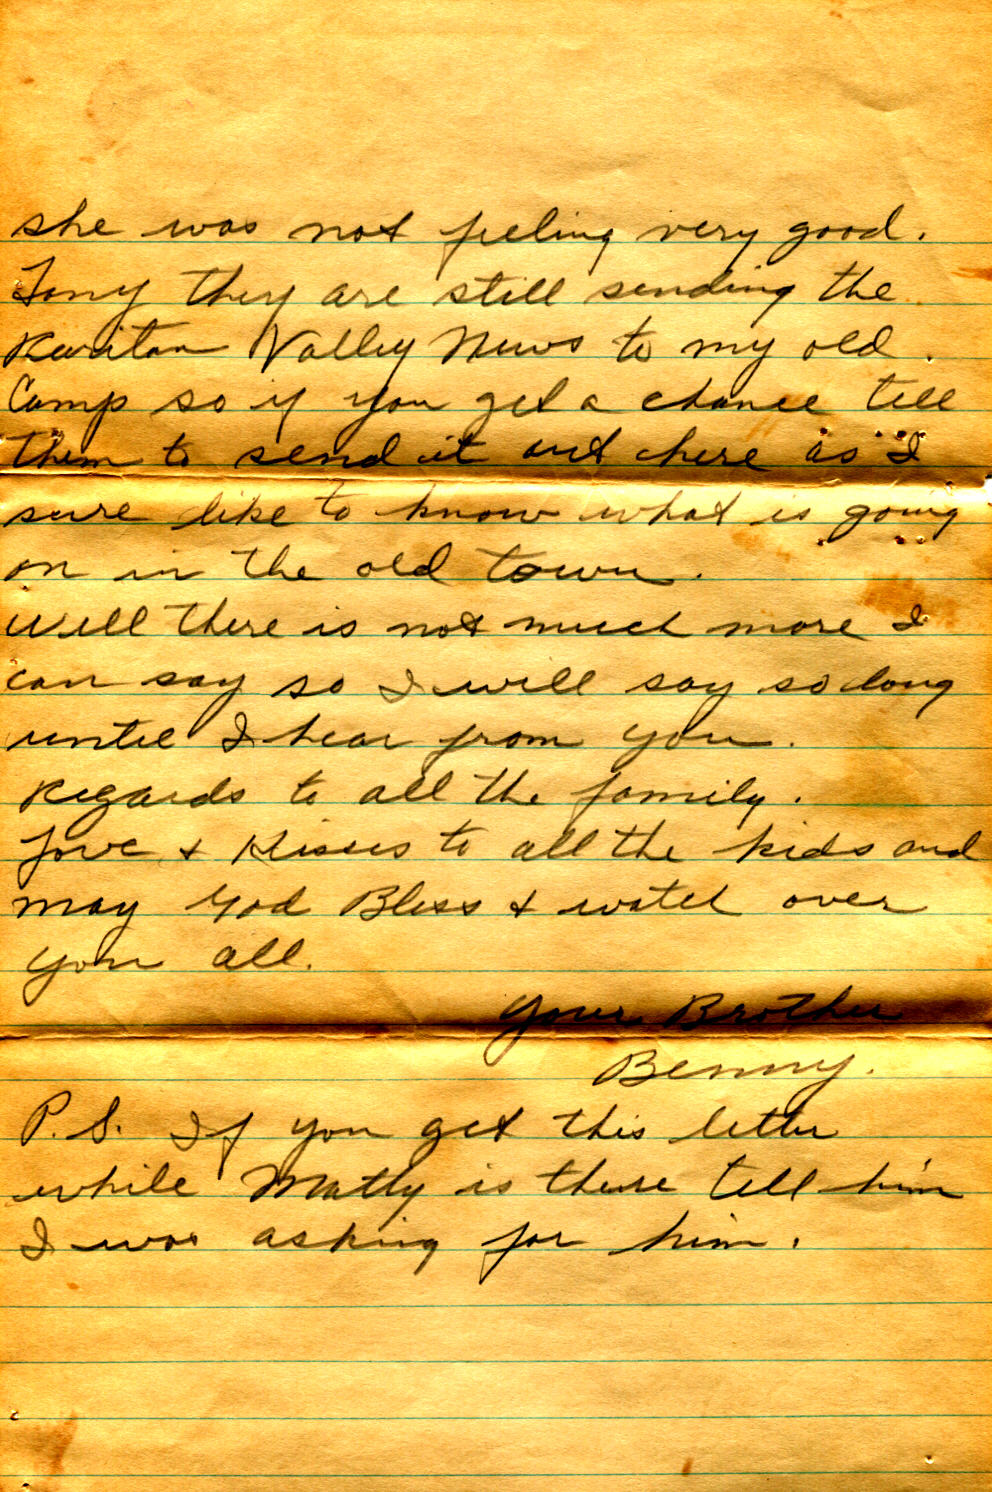 she was not feeling very good.
Tony they are still sending the
Raritan Valley News to my old
Camp so if you get a chance tell
them to send it out here as I
sure like to know what is going
on in the old town.
Well there is not much more I
can say so I will say so long
until I hear from you.
Regards to all the family.
Love & Kisses to all the kids and
may God Bless & watch over
you all.
Your Brother
Benny.
P.S. If you get this letter
while Matty is there tell him
I was asking for him.